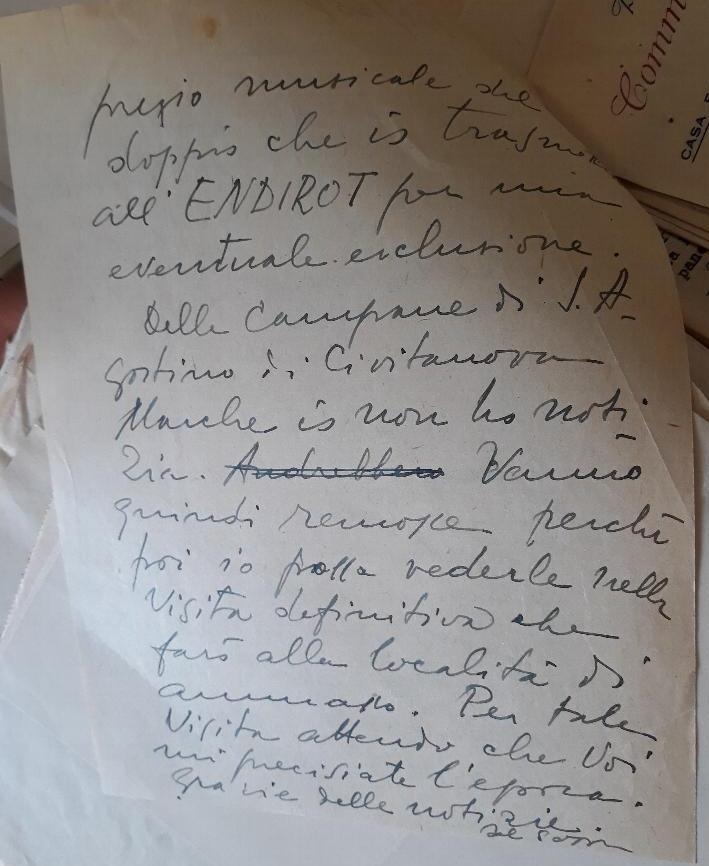 pregio musicale che
doppio che io
all'ENDIROT per mia
eventuale esclusione.
Delle Campane di S. A-
gostino di Civitanova
Marche io non ho noti
zia. Andrebbero Vanno
quindi remosse perché
poi io possa vederle nella
visita definitiva che
farò alla località di
ammasso. Per tale
visita attendo che Voi
mi precisiate l'epoca.
Grazie delle notizie
Comm
CASA
pane